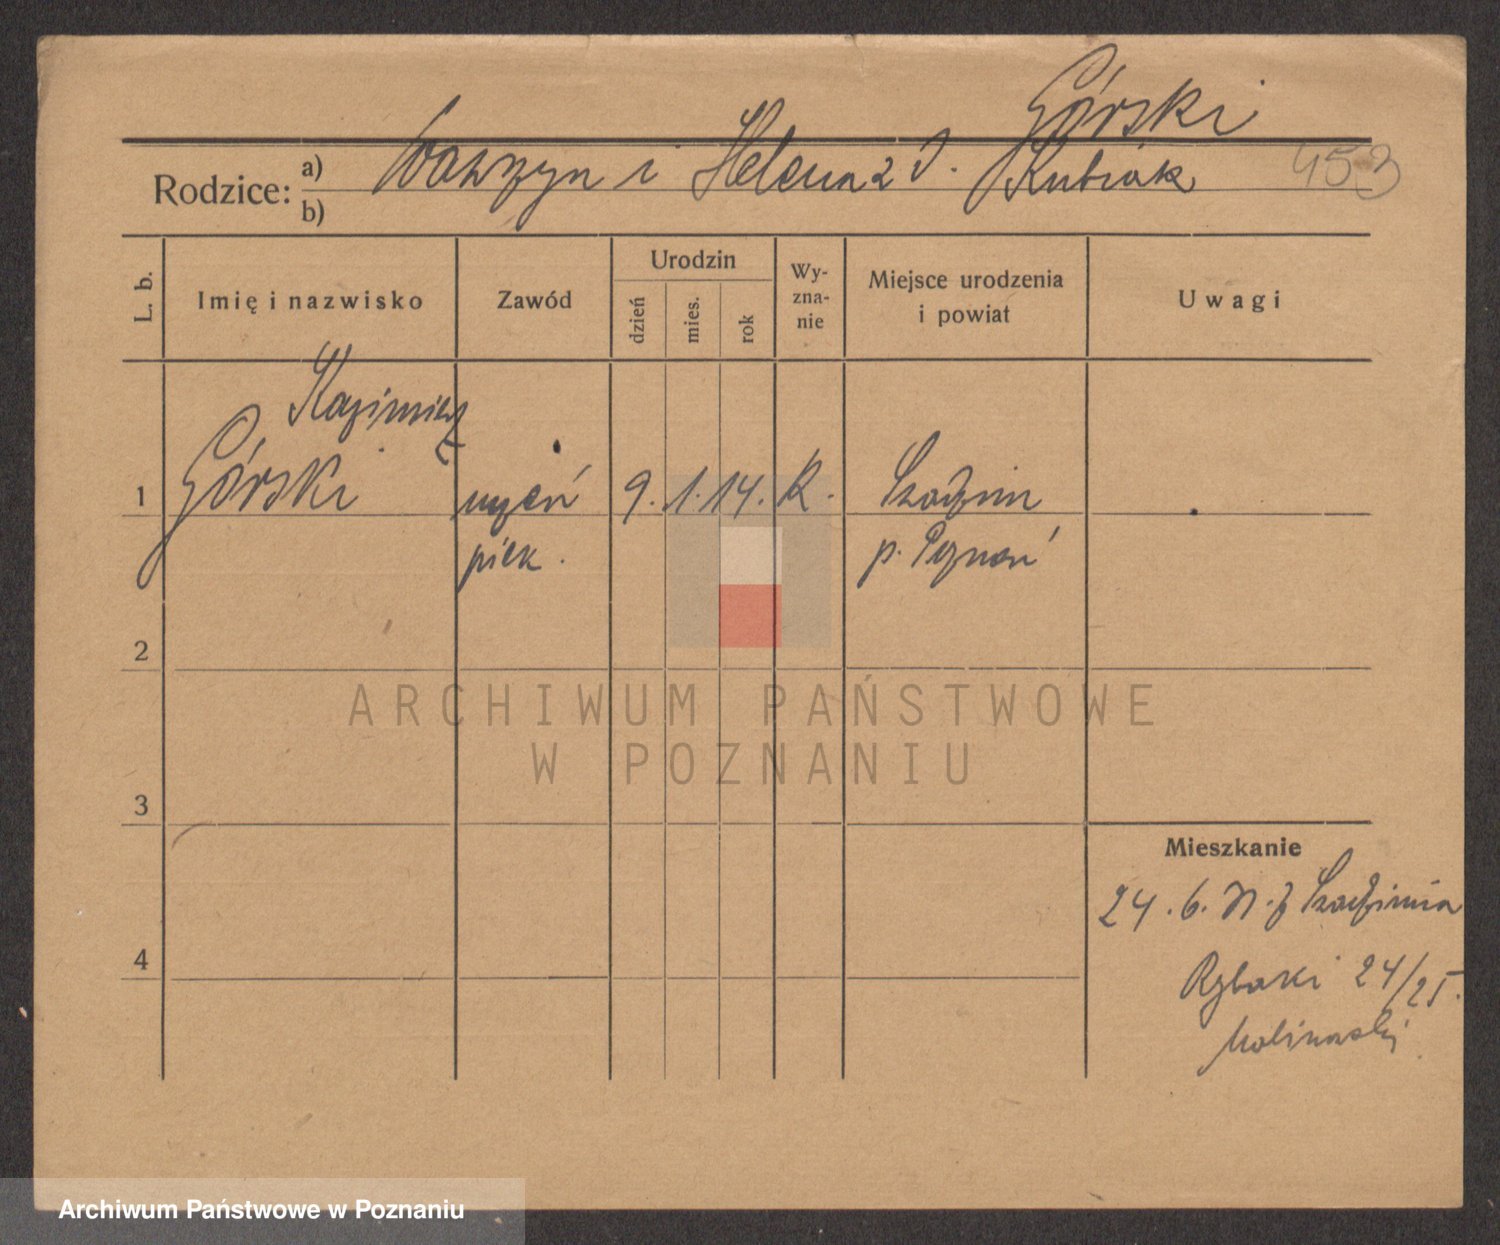 Górski
Rodzice: a) Wawrzyn i Helena z d. Kubiak 453
b)
L. b. Imię i nazwisko Zawód Urodzin dzień mies. rok Wy-zna-nie Miejsce urodzenia i powiat Uwagi
Kazimierz
1 Górski uczeń 9. 1. 14. K.
piek. p. Poznań
2
ARCHIWUM PAŃSTWOWE
W POZNANIU
3
Mieszkanie
24. 6.
Rybaki 24/25.
4
Archiwum Państwowe w Poznaniu